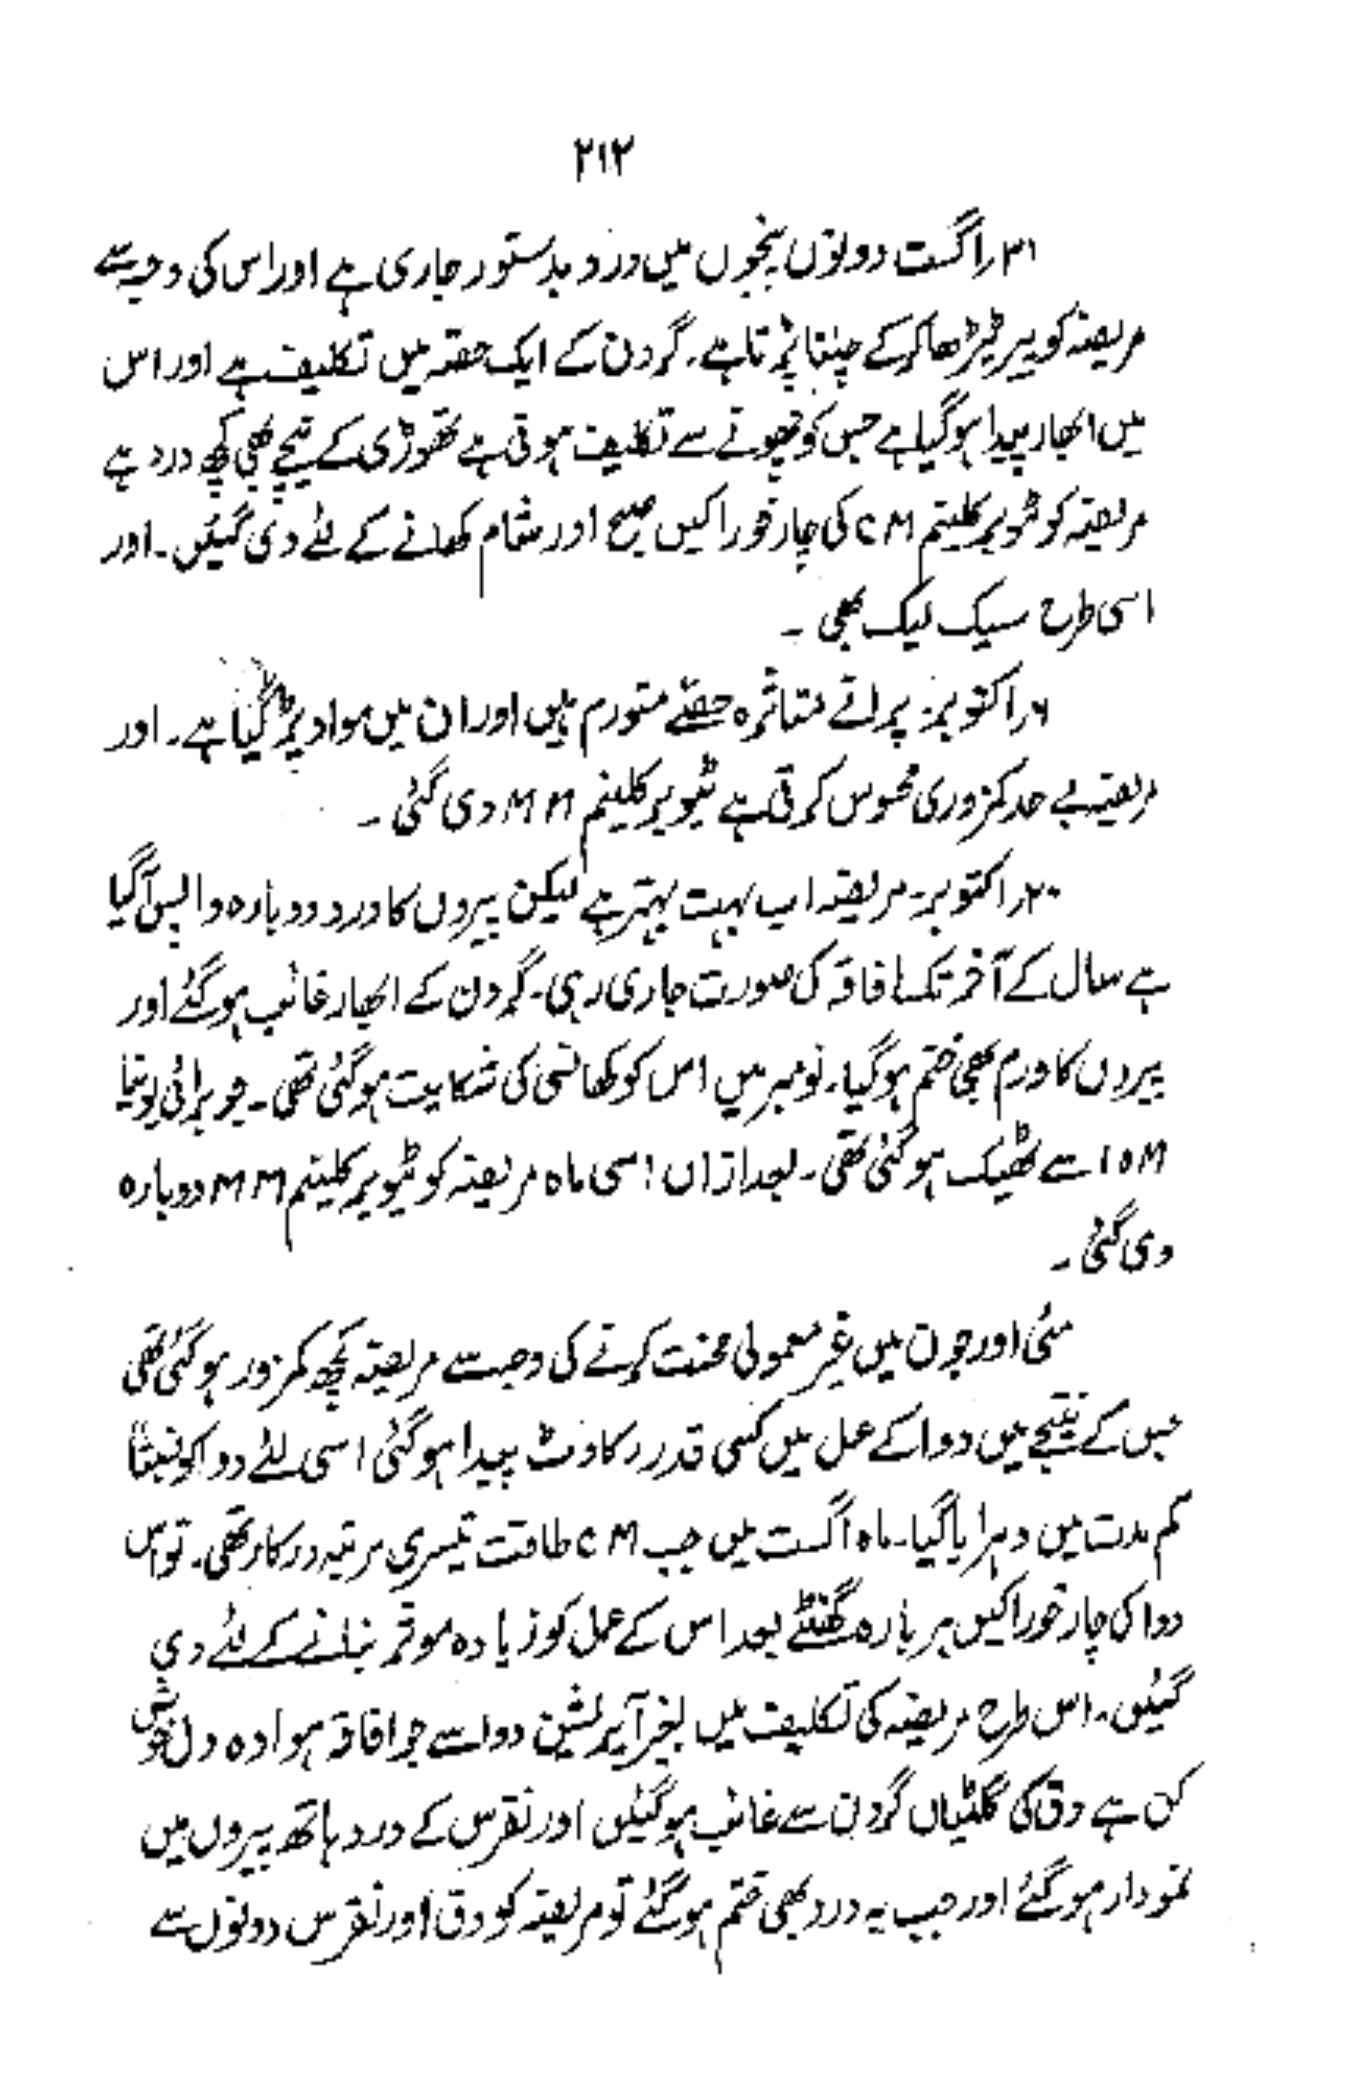 ۲۱۲
۳۱؍اگست دونوں پنجوں میں درد بدستور جاری ہے اور اس کی وجہ سے
مریضہ کو پیر ٹیڑھا کر کے چلنا پڑتا ہے۔ گردن کے ایک حصّہ میں تکلیف ہے اور اس
میں ابھار پیدا ہو گیا ہے جس کو چھونے سے تکلیف ہوتی ہے تھوڑی کے نیچے بھی کچھ درد ہے
مریضہ کو ٹیوبر کلینم CM کی چار خوراکیں صبح اور شام کھانے کے لئے دی گئیں۔ اور
اسی طرح سیک لیک بھی ۔
۶؍اکتوبر۔ پرانے متاثرہ حصّے متورم ہیں اور ان میں مواد پڑ گیا ہے۔ اور
مریضہ بے حد کمزوری محسوس کرتی ہے ٹیوبر کلینم MM دی گئی ۔
۲۰؍اکتوبر۔ مریضہ اب بہت بہتر ہے لیکن پیروں کا درد دوبارہ واپس آگیا
ہے سال کے آخر تک افاقہ کی صورت جاری رہی۔ گردن کے ابھار غائب ہو گئے اور
پیروں کا ورم بھی ختم ہو گیا۔ نومبر میں اس کو کھانسی کی شکایت ہو گئی تھی۔ جو برائی یونیا
10M سے ٹھیک ہو گئی تھی۔ بعد ازاں اسی ماہ مریضہ کو ٹیوبر کلینم MM دوبارہ
دی گئی ۔
مئی اور جون میں غیر معمولی محنت کرنے کی وجہ سے مریضہ کچھ کمزور ہو گئی تھی
جس کے نتیجے میں دوا کے عمل میں کسی قدر رکاوٹ پیدا ہو گئی اسی لئے دوا کو نسبتاً
کم مدت میں دہرایا گیا۔ ماہ اگست میں جب CM طاقت تیسری مرتبہ درکار تھی۔ تو اس
دوا کی چار خوراکیں ہر بارہ گھنٹے بعد اس کے عمل کو زیادہ موثر بنانے کے لئے دی
گئیں۔ اس طرح مریضہ کی تکلیف میں بغیر آپریشن دوا سے جو افاقہ ہوا وہ دل خوش
کن ہے دق کی گلٹیاں گردن سے غائب ہو گئیں اور نقرس کے درد ہاتھ پیروں میں
نمودار ہو گئے اور جب یہ درد بھی ختم ہو گئے تو مریضہ کو دق اور نقرس دونوں سے